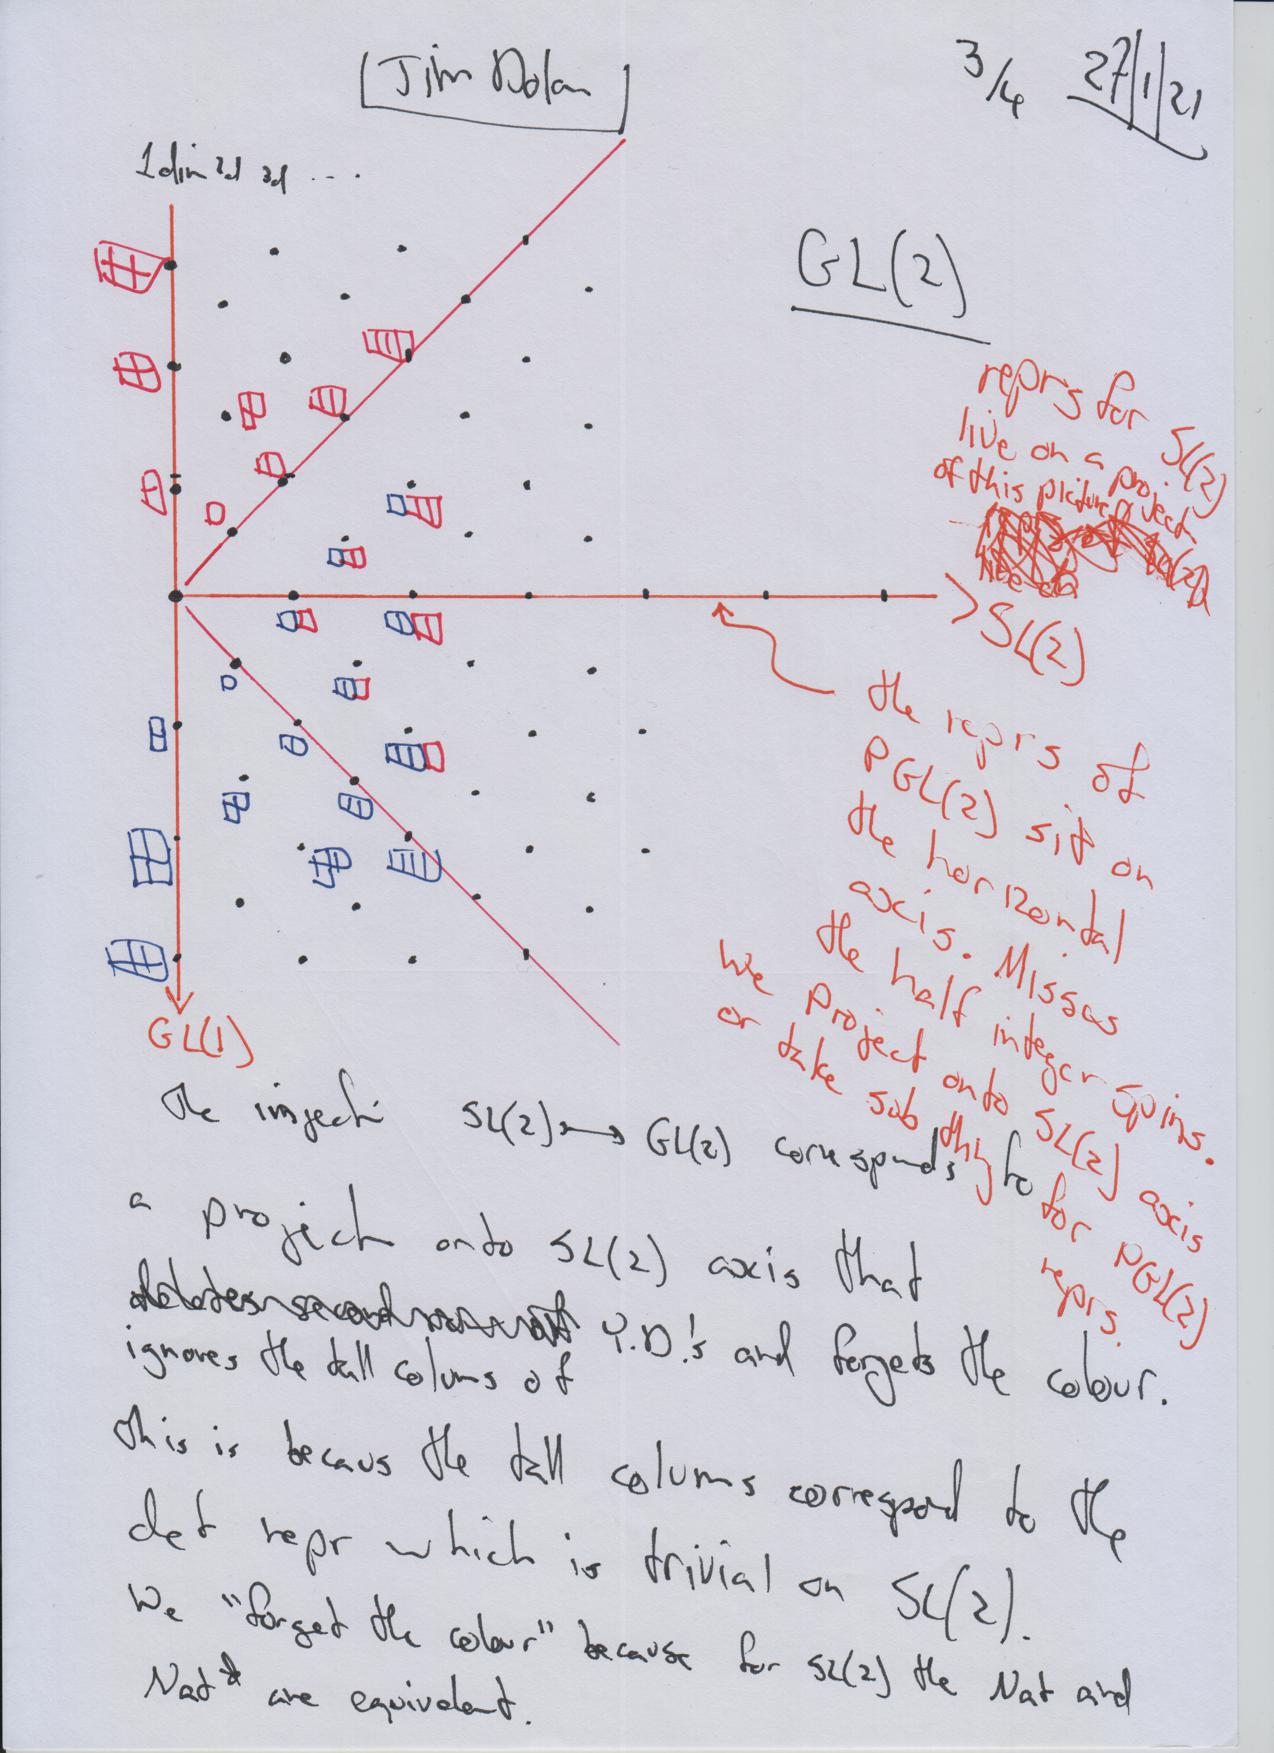 Jim Dolan
3/4 27/1/21
1 dim 2d 3d ...
GL(2)
reprs for SL(2)
live on a project
of this picture
SL(2)
the reprs of
PGL(2) sit on
the horizontal
axis. Misses
the half integer spins.
We project onto SL(2) axis
or take sub thing for PGL(2)
reprs.
GL(1)
The inject SL(2) → GL(2) corresponds to
a project onto SL(2) axis that
ignores the tall colums of Y.D.'s and forgets the colour.
This is becaus the tall colums correspond to the
det repr which is trivial on SL(2).
We "forget the colour" because for SL(2) the Nat and
Nat* are equivalent.